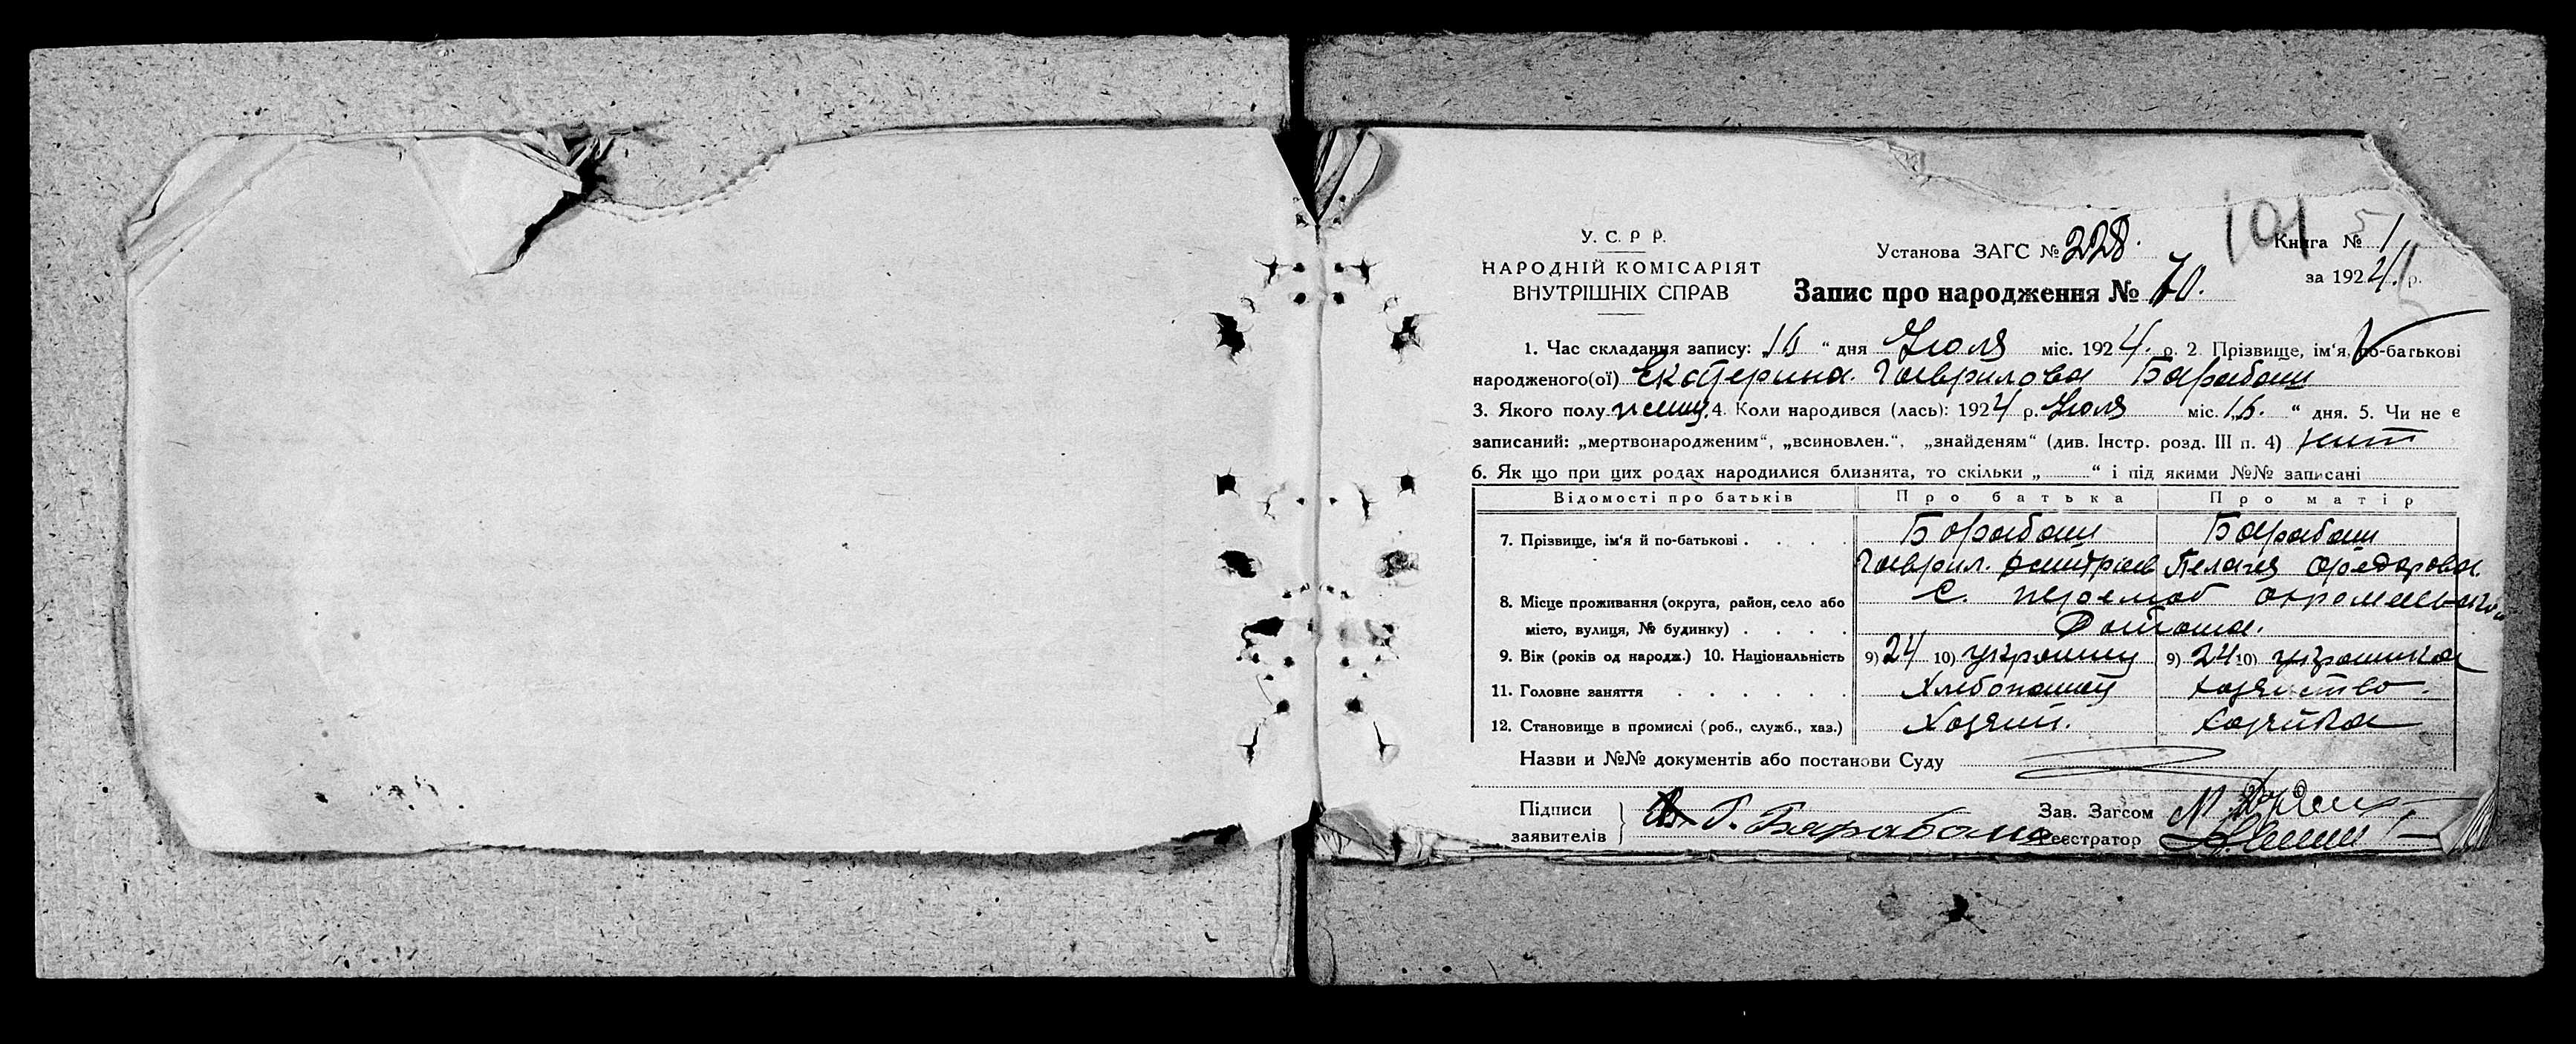 101
У. С. Р Р.
НАРОДНІЙ КОМІСАРІЯТ
ВНУТРІШНІХ СПРАВ
Установа ЗАГС № 228.
Книга № 1
за 1924 р.
Запис про народження № 70.
1. Час складання запису: „16 “ дня Июля міс. 1924. р. 2. Прізвище, ім‘я, по-батькові
народженого(ої) Екатерина. Гаврилова Барабаш
3. Якого полу 4. Коли народився (лась): 1924 р. Июля міс. „ “ дня. 5. Чи не є
записаний: „мертвонародженим“, „всиновлен.“, „знайденям“ (див. Інстр. розд. III п. 4) нит
6. Як що при цих родах народилися близнята, то скільки „ “ і під якими №№ записані
Відомості про батьків Про батька Про матір
7. Прізвище, ім‘я й по-батькові . . . . Барабаш Барабаш
Гаврил. Дмитриев Пелагея Федорова.
8. Місце проживання (округа, район, село або С.
місто, вулиця, № будинку) . . . .
9. Вік (років од народж.) 10. Національність 9) 24 10) украинц 9) 24 10) украинка
11. Головне заняття . . . . . . Хлебопашец хозяйство.
12. Становище в промислі (роб., служб., хаз.) Хозяин. Хозяйка
Назви и №№ документів або постанови Суду
Підписи
заявителів Г. Барабаш
Зав. Загсом
Реєстратор